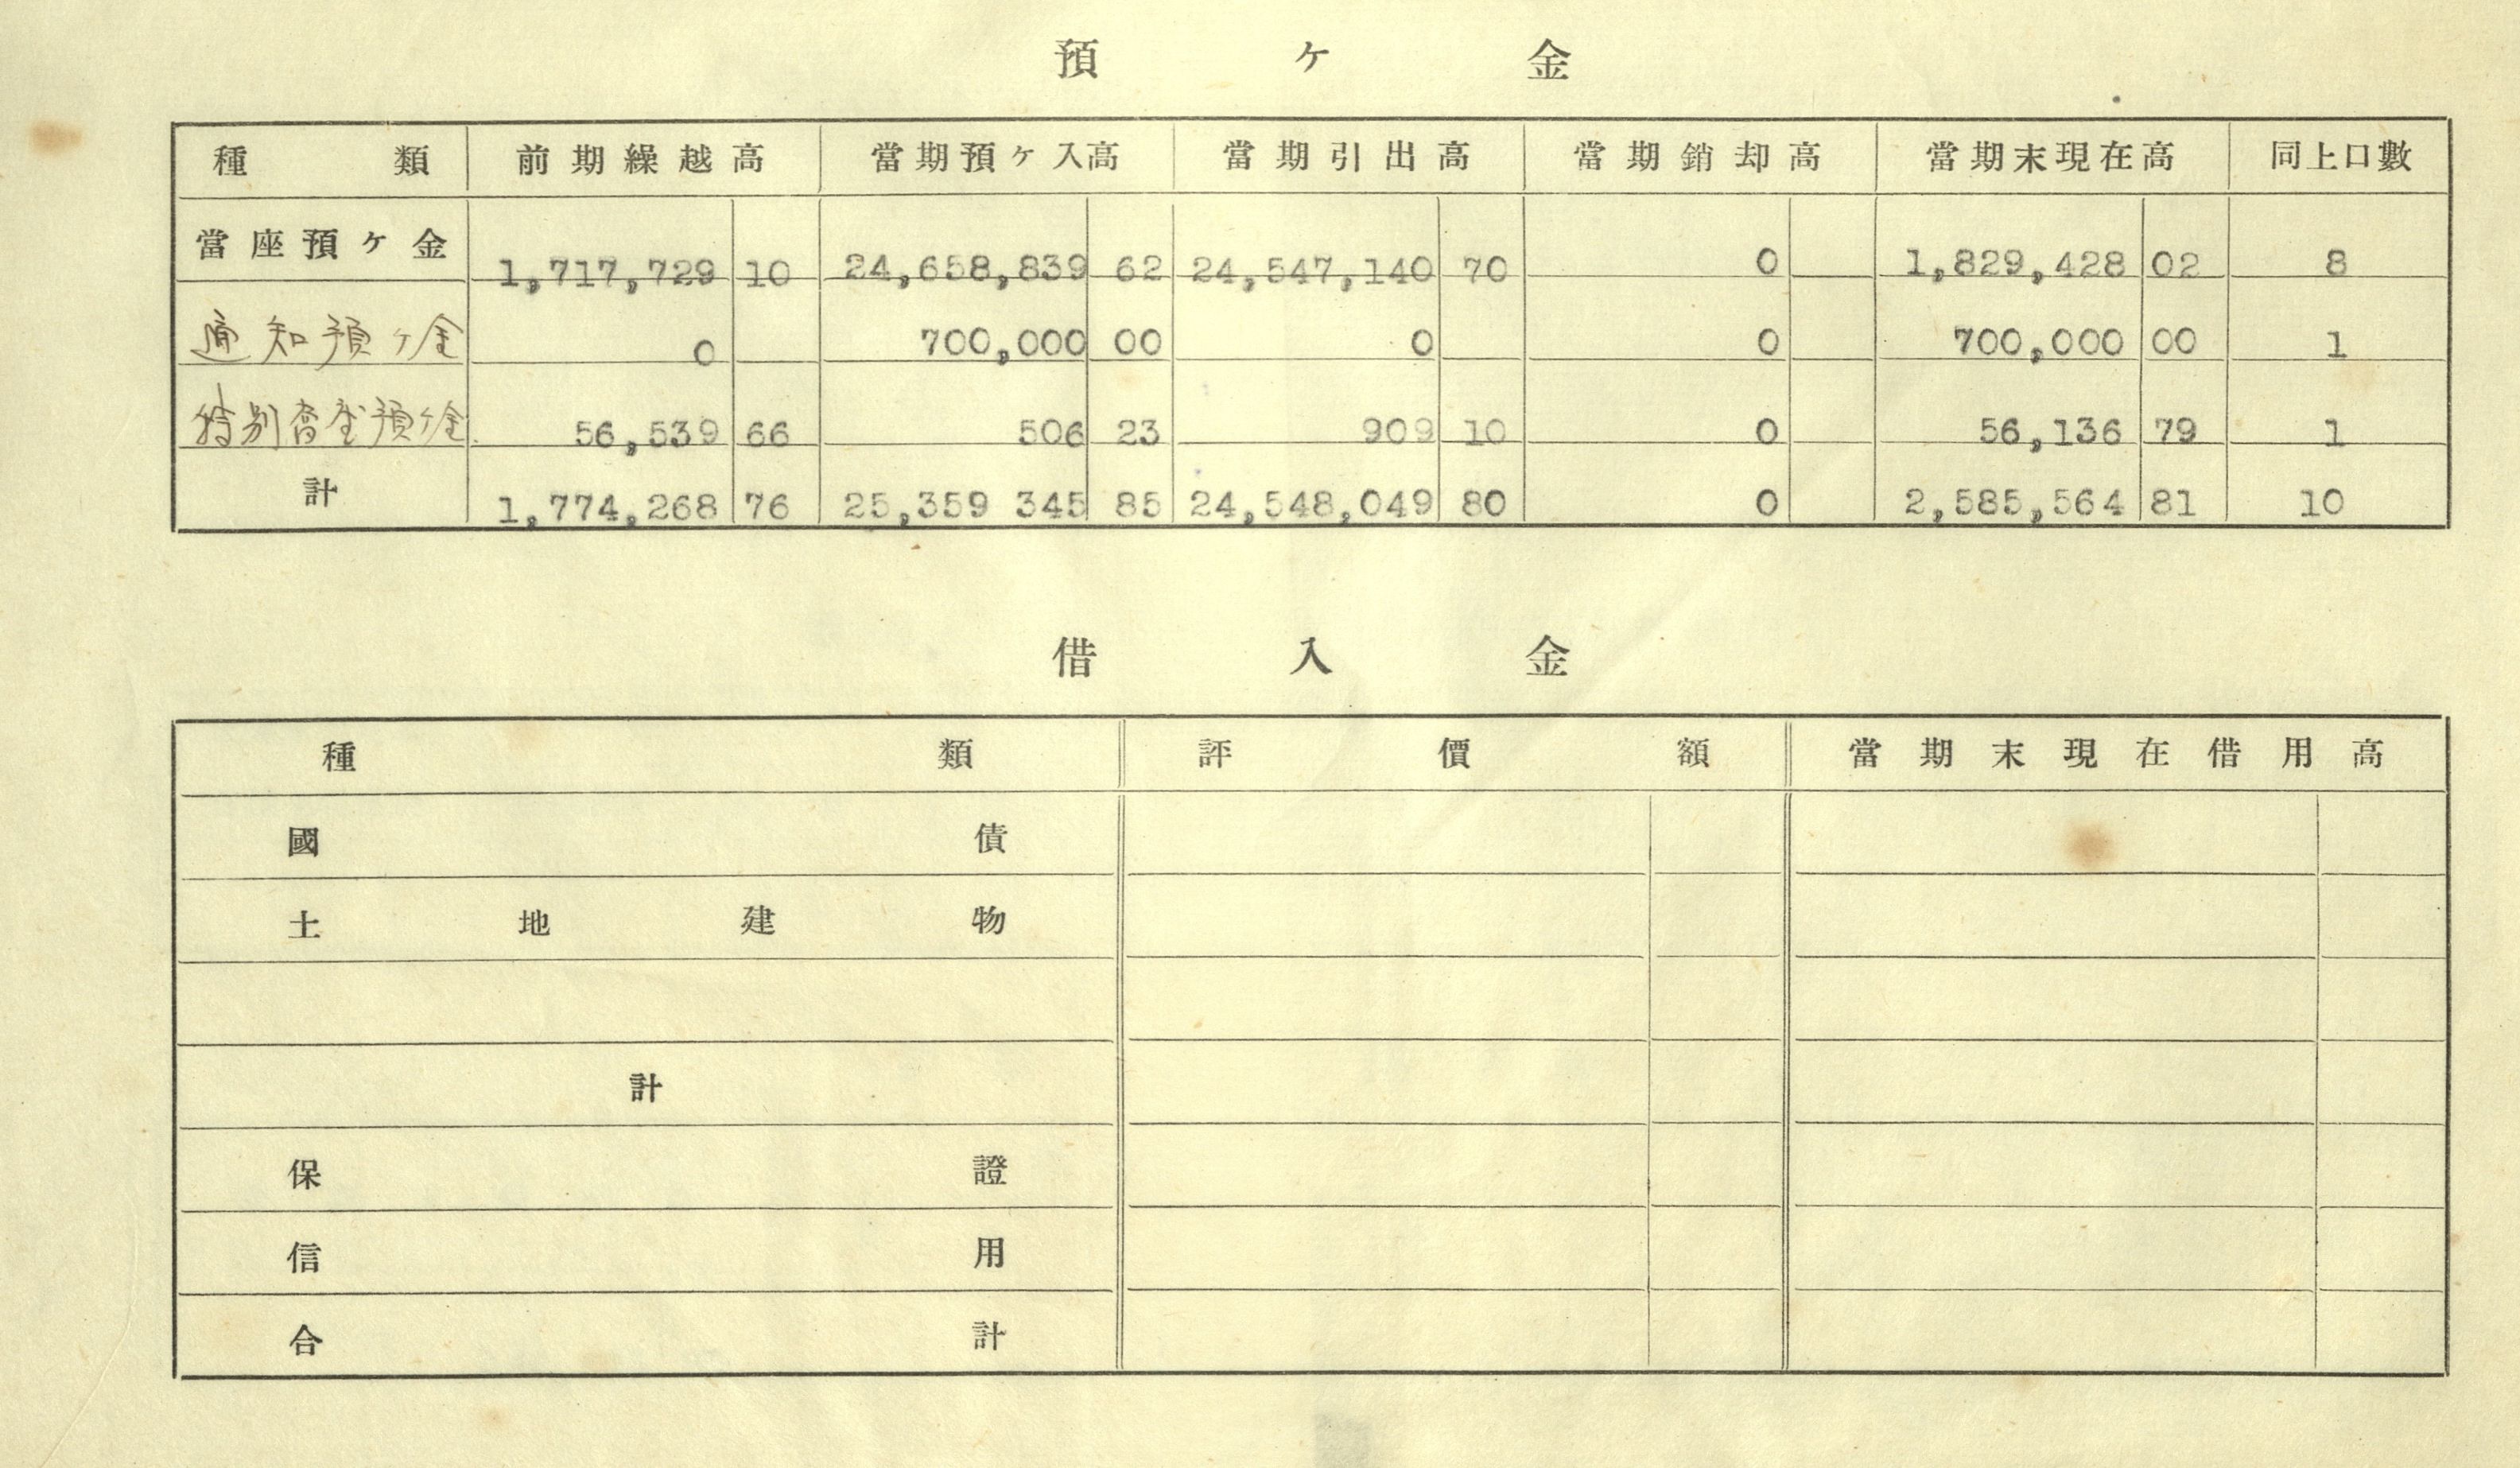 預ケ金
種類 前期繰越高 當期預ケ入高 當期引出高 當期銷却高 當期末現在高 同上口數
當座預ケ金 1,717,729 10 24,658,839 62 24,547,140 70 0 1,829,428 02 8
通知預ケ金 0 700,000 00 0 0 700,000 00 1
特別當座預ケ金 56,539 66 506 23 909 10 0 56,136 79 1
計 1,774,268 76 25,359 345 85 24,548,049 80 0 2,585,564 81 10
借入金
種類 評價額 當期末現在借用高
國債
土地建物
計
保證
信用
合計